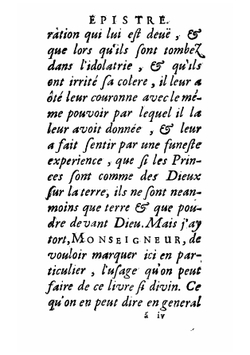 EPISTRE.
ration qui lui est deuë, &
que lors qu'ils sont tombez
dans l'idolatrie, & qu'ils
ont irrité sa colere, il leur a
ôté leur couronne avec le mê-
me pouvoir par lequel il la
leur avoit donnée, & leur
a fait sentir par une funeste
experience, que si les Prin-
ces sont comme des Dieux
sur la terre, ils ne sont nean-
moins que terre & que pou-
dre devant Dieu. Mais j'ay
tort, MONSEIGNEUR, de
vouloir marquer ici en par-
ticulier, l'usage qu'on peut
faire de ce livre si divin. Ce
qu'on en peut dire en general
á iv